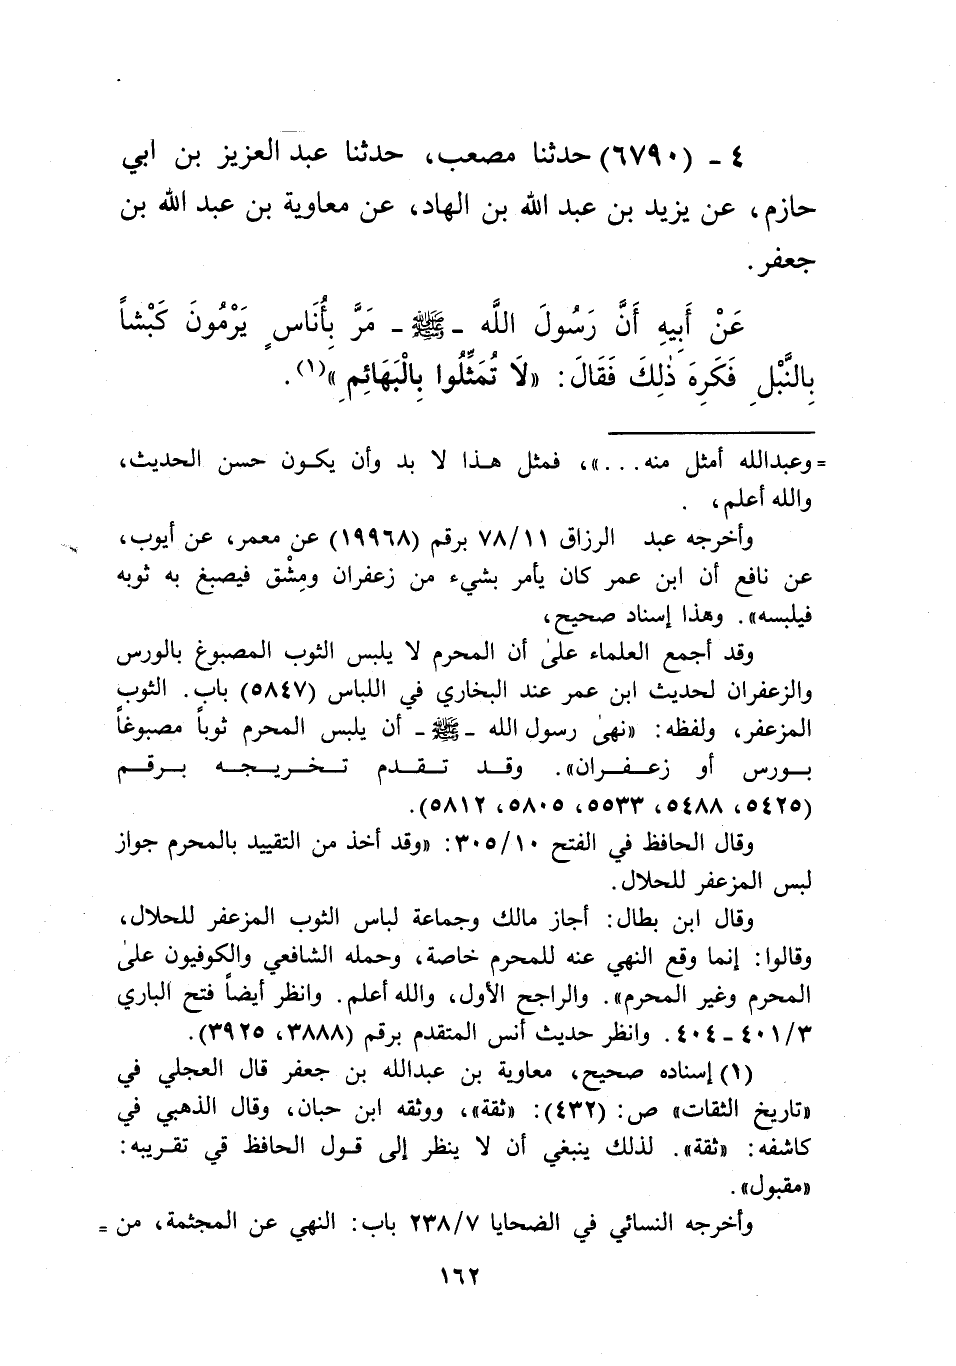 ٤ ـ (٦٧٩٠) حدثنا مصعب، حدثنا عبد العزيز بن ابي
حازم، عن يزيد بن عبد الله بن الهاد، عن معاوية بن عبد الله بن
جعفر.
عَنْ أَبِيهِ أَنَّ رَسُولَ اللَّه ـ ﷺ ـ مَرَّ بِأُنَاسٍ يَرْمُونَ كَبْشاً
بِالنَّبْلِ فَكَرِهَ ذٰلِكَ فَقَالَ: «لَا تُمَثِّلُوا بِالْبَهَائِمِ»(١).
= وعبدالله أمثل منه...»، فمثل هـذا لا بد وأن يكـون حسن الحديث،
والله أعلم، .
وأخرجه عبد الرزاق ٧٨/١١ برقم (١٩٩٦٨) عن معمر، عن أيوب،
عن نافع أن ابن عمر كان يأمر بشيء من زعفران ومِشْق فيصبغ به ثوبه
فيلبسه». وهذا إسناد صحيح،
وقد أجمع العلماء علىٰ أن المحرم لا يلبس الثوب المصبوغ بالورس
والزعفران لحديث ابن عمر عند البخاري في اللباس (٥٨٤٧) باب. الثوب
المزعفر، ولفظه: «نهىٰ رسول الله ـ ﷺ ـ أن يلبس المحرم ثوباً مصبوغاً
بـورس أو زعـفـران». وقـد تـقـدم تـخـريـجـه بـرقـم
(٥٤٢٥، ٥٤٨٨، ٥٥٣٣، ٥٨٠٥، ٥٨١٢).
وقال الحافظ في الفتح ٣٠٥/١٠: «وقد أخذ من التقييد بالمحرم جواز
لبس المزعفر للحلال.
وقال ابن بطال: أجاز مالك وجماعة لباس الثوب المزعفر للحلال،
وقالوا: إنما وقع النهي عنه للمحرم خاصة، وحمله الشافعي والكوفيون علىٰ
المحرم وغير المحرم». والراجح الأول، والله أعلم. وانظر أيضاً فتح الباري
٤٠١/٣ ـ ٤٠٤. وانظر حديث أنس المتقدم برقم (٣٨٨٨، ٣٩٢٥).
(١) إسناده صحيح، معاوية بن عبدالله بن جعفر قال العجلي في
«تاريخ الثقات» ص: (٤٣٢): «ثقة»، ووثقه ابن حبان، وقال الذهبي في
كاشفه: «ثقة». لذلك ينبغي أن لا ينظر إلى قـول الحافظ قي تقـريبه:
«مقبول».
وأخرجه النسائي في الضحايا ٢٣٨/٧ باب: النهي عن المجثمة، من =
١٦٢